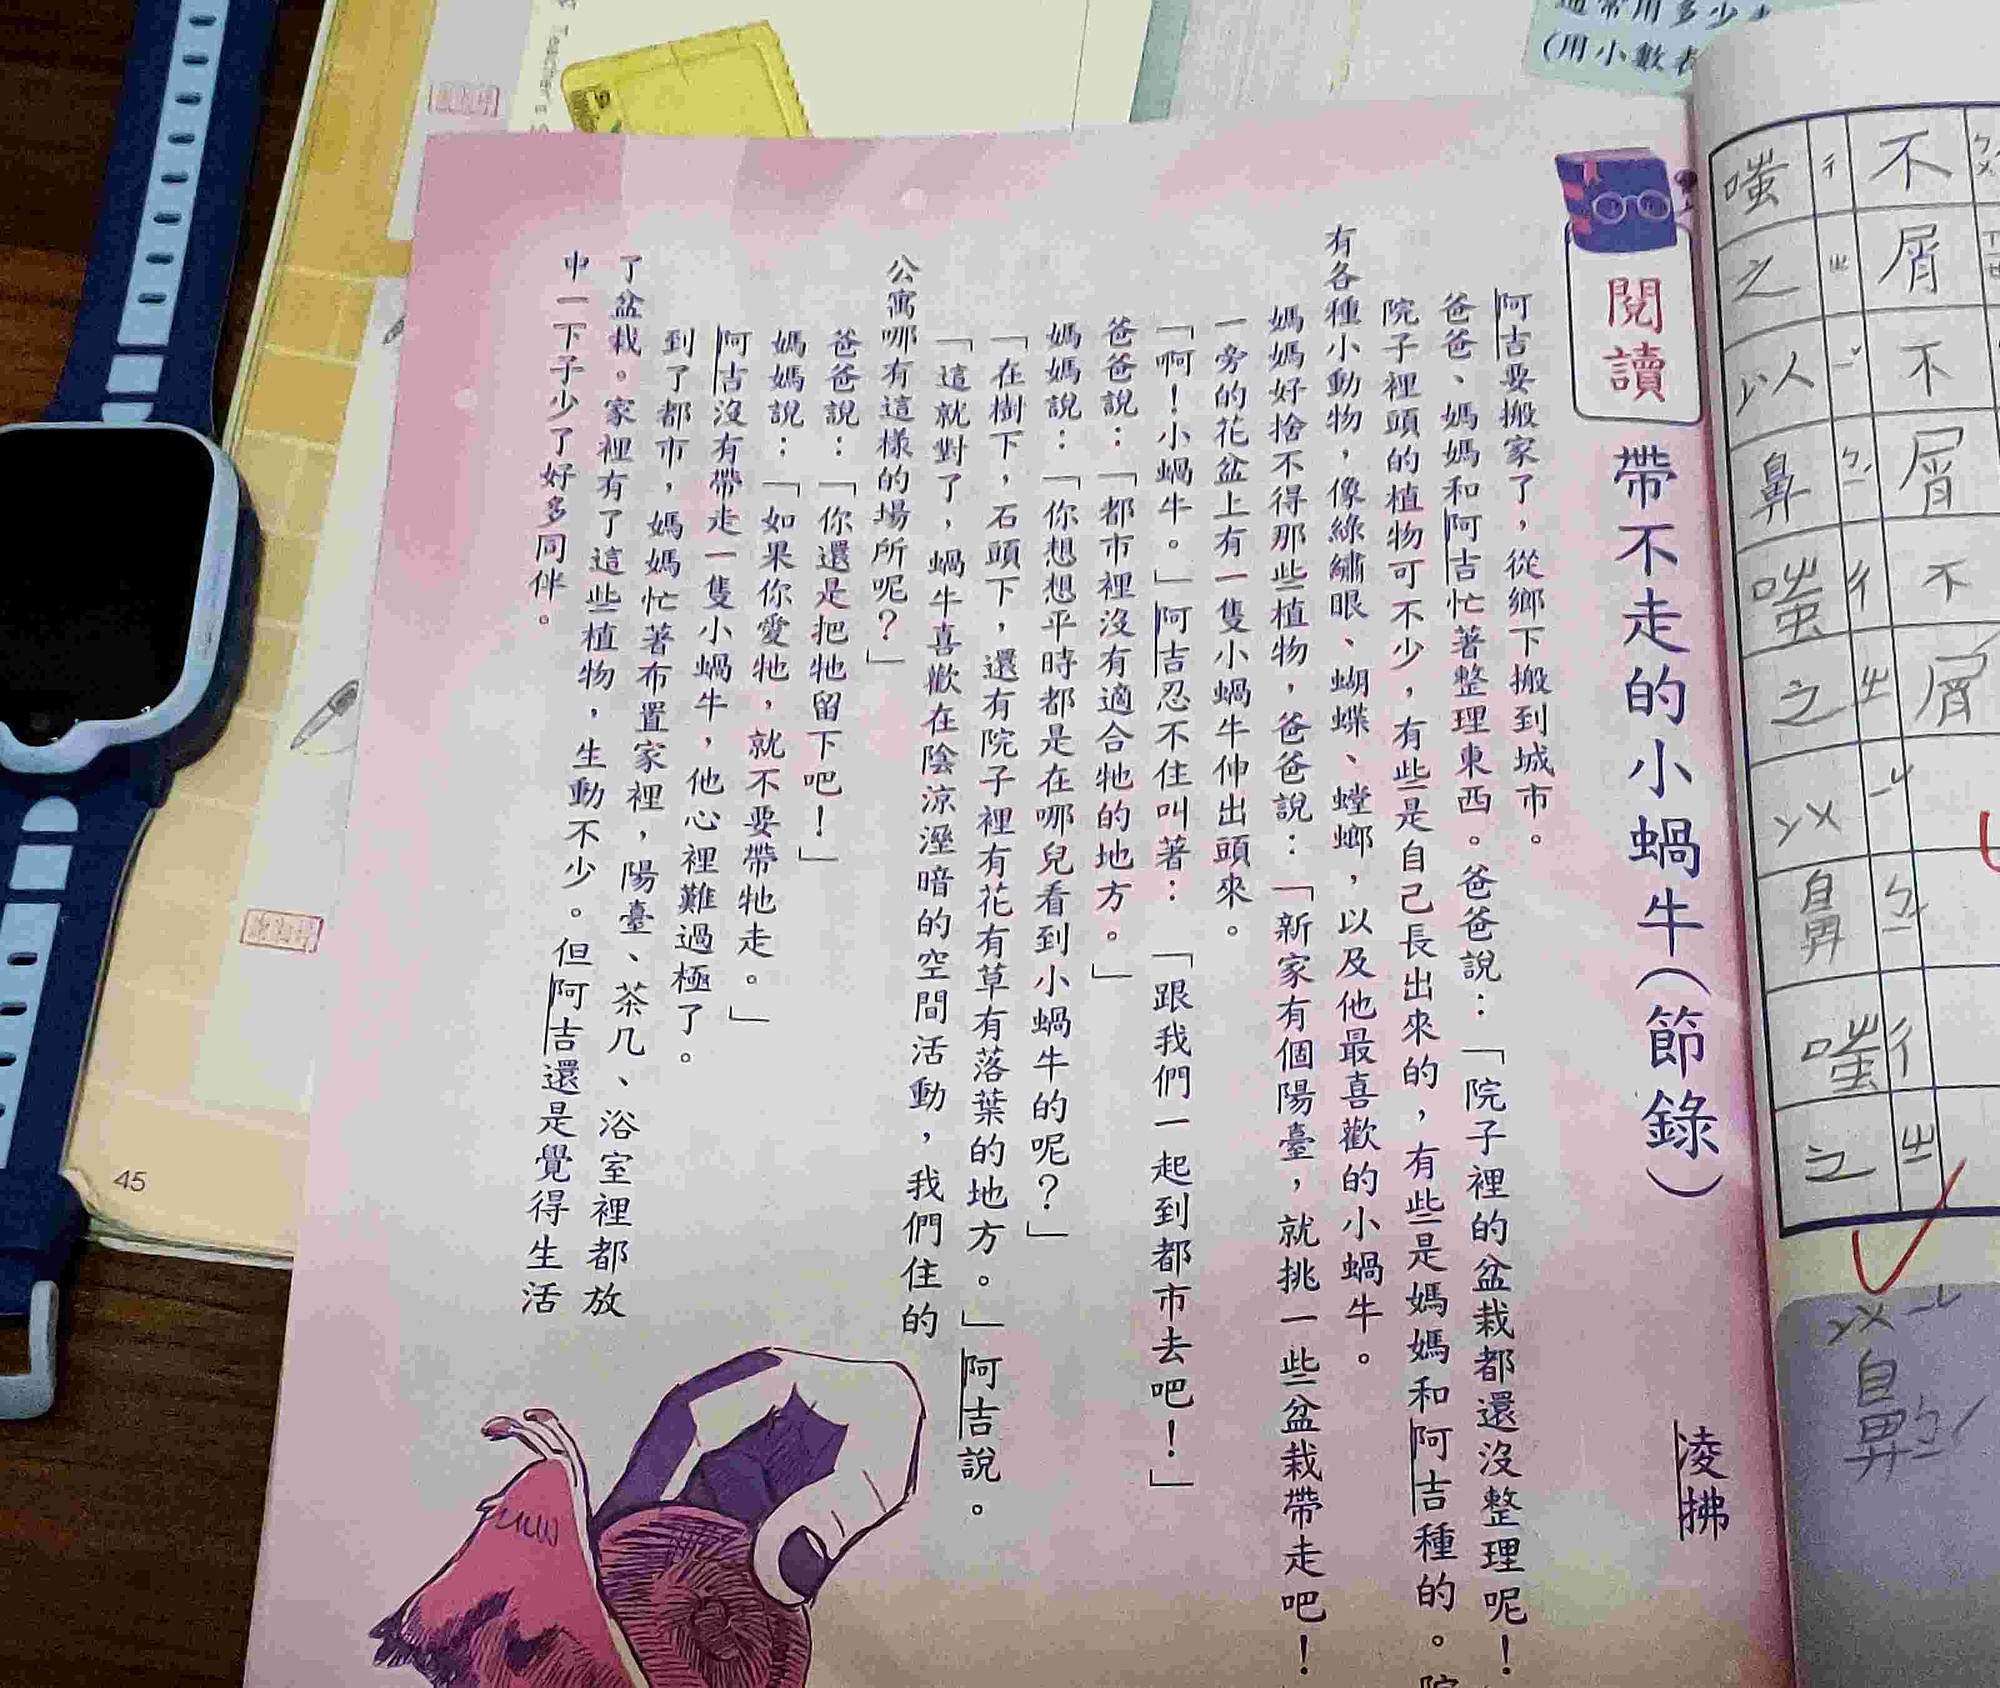 閱讀
帶不走的小蝸牛(節錄)
凌拂
阿吉要搬家了，從鄉下搬到城市。
爸爸、媽媽和阿吉忙著整理東西。爸爸說：「院子裡的盆栽都還沒整理呢！
院子裡頭的植物可不少，有些是自己長出來的，有些是媽媽和阿吉種的。院
有各種小動物，像綠繡眼、蝴蝶、螳螂，以及他最喜歡的小蝸牛。
媽媽好捨不得那些植物，爸爸說：「新家有個陽臺，就挑一些盆栽帶走吧！
一旁的花盆上有一隻小蝸牛伸出頭來。
「啊！小蝸牛。」阿吉忍不住叫著：「跟我們一起到都市去吧！」
爸爸說：「都市裡沒有適合牠的地方。」
媽媽說：「你想想平時都是在哪兒看到小蝸牛的呢？」
「在樹下，石頭下，還有院子裡有花有草有落葉的地方。」阿吉說。
「這就對了，蝸牛喜歡在陰涼溼暗的空間活動，我們住的
公寓哪有這樣的場所呢？」
爸爸說：「你還是把牠留下吧！」
媽媽說：「如果你愛牠，就不要帶牠走。」
阿吉沒有帶走一隻小蝸牛，他心裡難過極了。
到了都市，媽媽忙著布置家裡，陽臺、茶几、浴室裡都放
了盆栽。家裡有了這些植物，生動不少。但阿吉還是覺得生活
中一下子少了好多同伴。
45
(用小數表
不屑不屑
嗤之以鼻嗤之
鼻嗤之
鼻ㄅㄧˊ